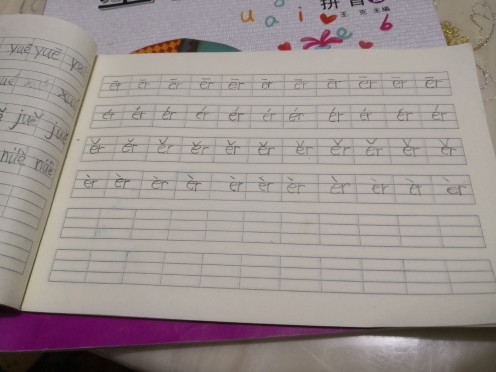 拼音
王 克 主编
u a i e
yuē
juě
nüè nüè
ēr ēr ēr ēr ēr ēr ēr ēr ēr ēr ēr
ér ér ér ér ér ér ér ér ér ér ér
ěr ěr ěr ěr ěr ěr ěr ěr ěr ěr ěr
èr èr èr èr èr èr èr èr èr èr èr